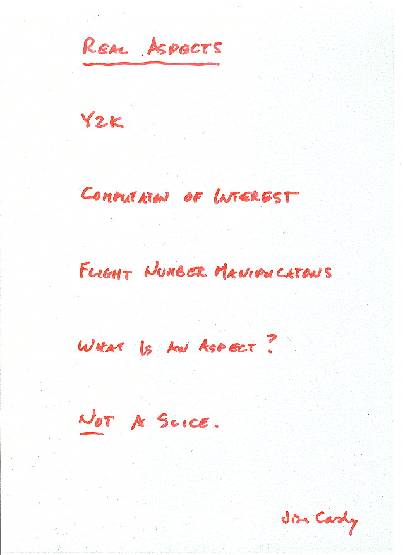 REAL ASPECTS
Y2K
COMPUTATION OF INTEREST
FLIGHT NUMBER MANIPULATIONS
WHAT IS AN ASPECT?
NOT A SLICE.
Jim